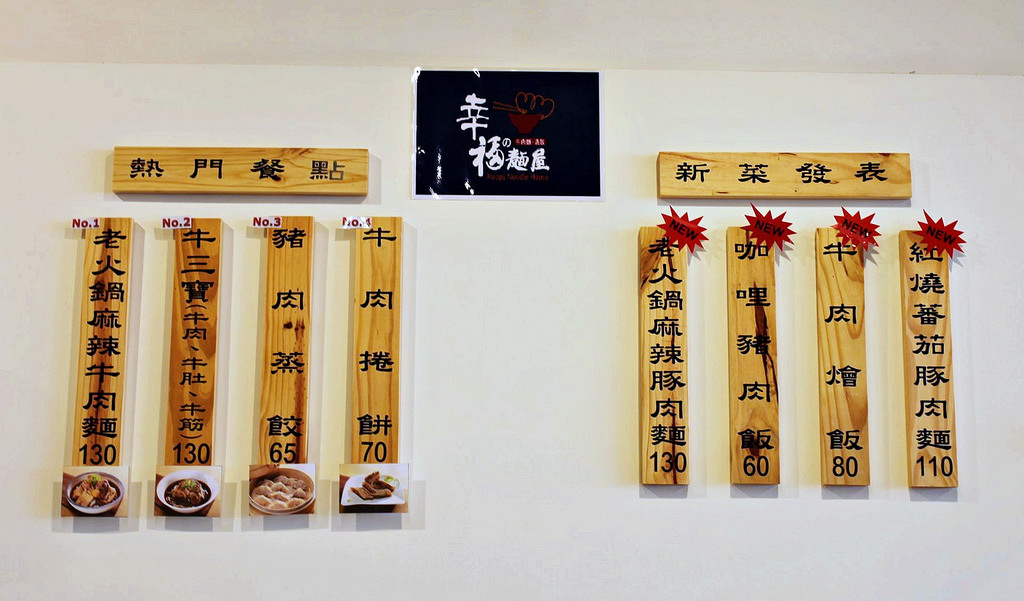 幸福の麵屋
Happy Noodle House
熱門餐點
No.1
老火鍋麻辣牛肉麵
130
No.2
牛三寶(牛肉、牛肚、牛筋)
130
No.3
豬肉蒸餃
65
No.4
牛肉捲餅
70
新菜發表
NEW
老火鍋麻辣豚肉麵
130
NEW
咖哩豬肉飯
60
NEW
牛肉燴飯
80
NEW
紅燒蕃茄豚肉麵
110